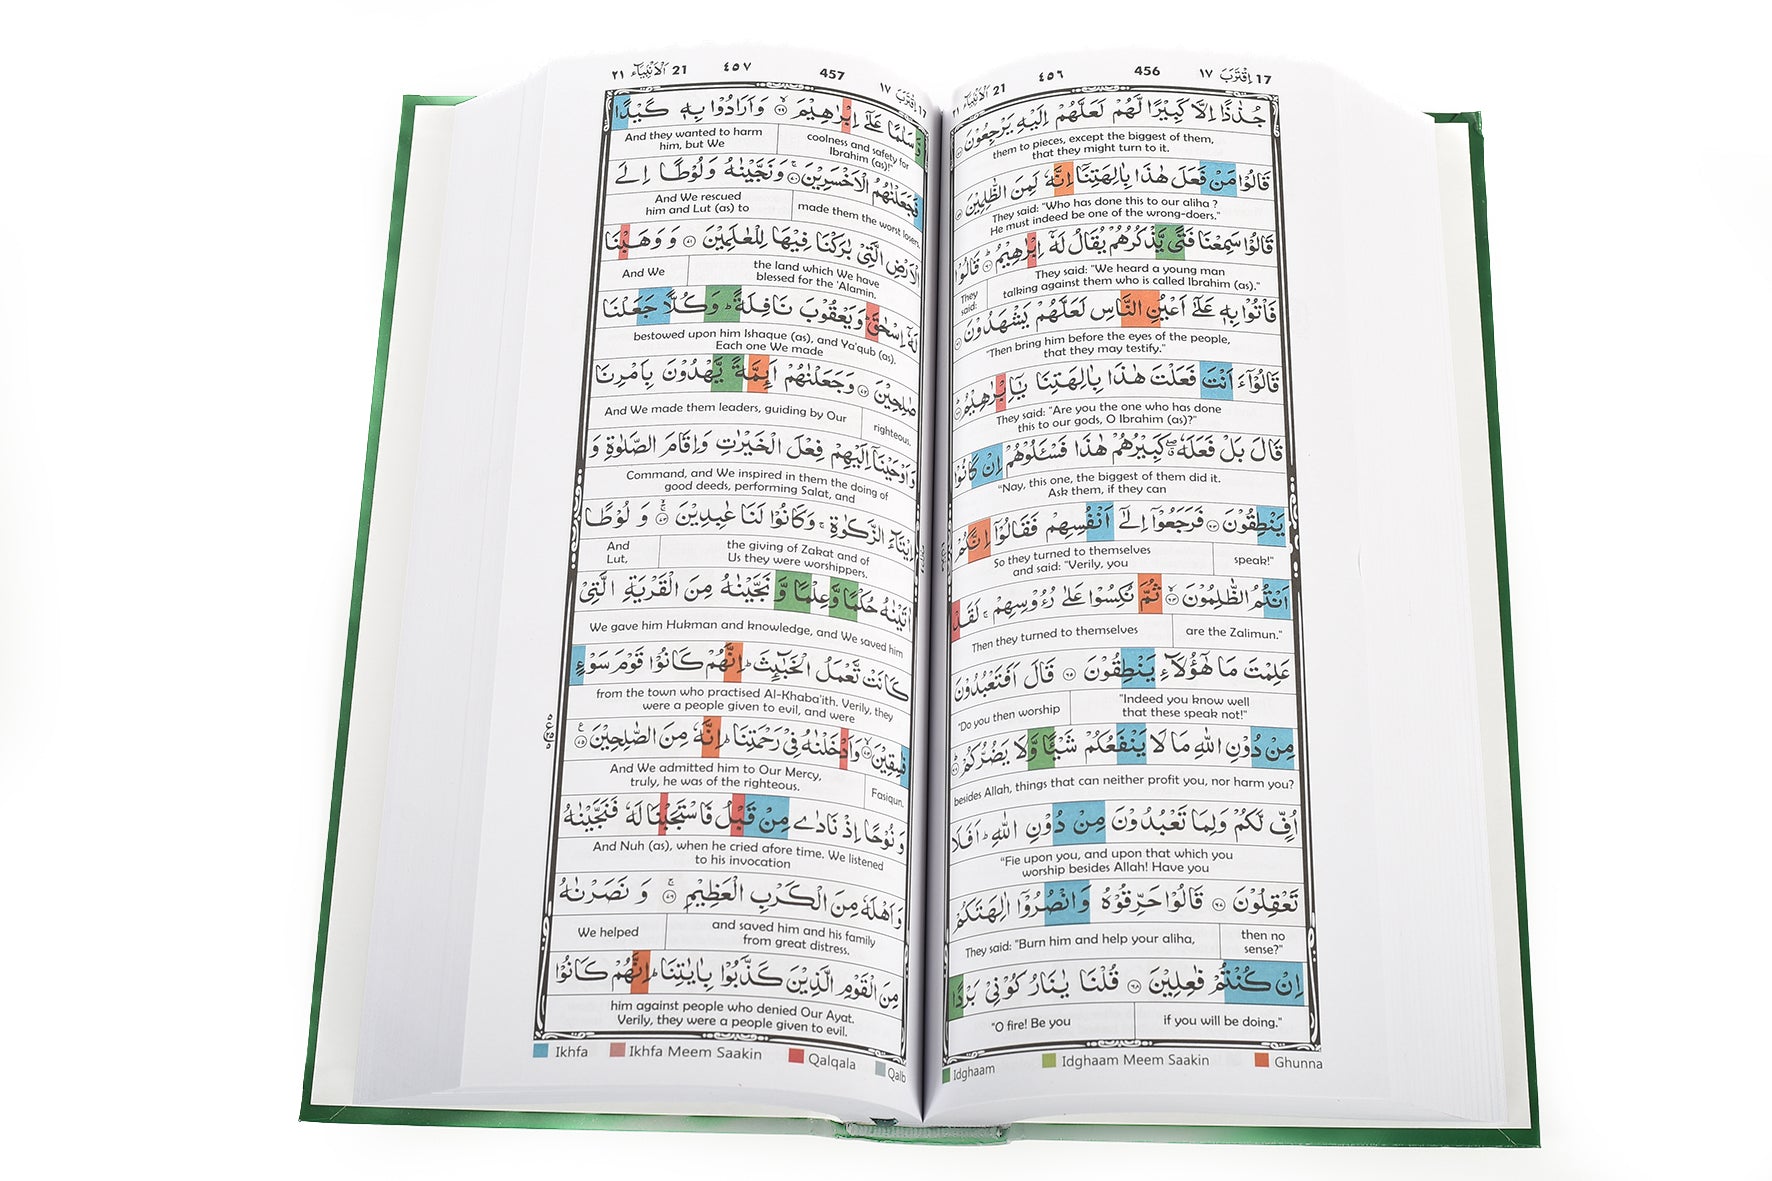 17 اِقْتَرَبَ ١٧
456
٤٥٦
21 اَلْاَنْبِيَآء ٢١
جُذٰذًا اِلَّا كَبِيْرًا لَّهُمْ لَعَلَّهُمْ اِلَيْهِ يَرْجِعُوْنَ ۝٥٨
them to pieces, except the biggest of them,
that they might turn to it.
قَالُوْا مَنْ فَعَلَ هٰذَا بِاٰلِهَتِنَآ اِنَّهٗ لَمِنَ الظّٰلِمِيْنَ ۝٥٩
They said: "Who has done this to our aliha ?
He must indeed be one of the wrong-doers."
قَالُوْا سَمِعْنَا فَتًى يَّذْكُرُهُمْ يُقَالُ لَهٗٓ اِبْرٰهِيْمُ ۝٦٠ قَالُوْا
They said: "We heard a young man
talking against them who is called Ibrahim (as)."
They
said:
فَاْتُوْا بِهٖ عَلٰٓى اَعْيُنِ النَّاسِ لَعَلَّهُمْ يَشْهَدُوْنَ ۝٦١
"Then bring him before the eyes of the people,
that they may testify."
قَالُوْٓا ءَاَنْتَ فَعَلْتَ هٰذَا بِاٰلِهَتِنَا يٰٓاِبْرٰهِيْمُ ۝٦٢
They said: "Are you the one who has done
this to our gods, O Ibrahim (as)?"
قَالَ بَلْ فَعَلَهٗ كَبِيْرُهُمْ هٰذَا فَسْـَٔلُوْهُمْ اِنْ كَانُوْا
"Nay, this one, the biggest of them did it.
Ask them, if they can
يَنْطِقُوْنَ ۝٦٣ فَرَجَعُوْٓا اِلٰٓى اَنْفُسِهِمْ فَقَالُوْٓا اِنَّكُمْ
speak!"
So they turned to themselves
and said: "Verily, you
اَنْتُمُ الظّٰلِمُوْنَ ۝٦٤ ثُمَّ نُكِسُوْا عَلٰى رُءُوْسِهِمْ لَقَدْ
are the Zalimun."
Then they turned to themselves
عَلِمْتَ مَا هٰٓؤُلَآءِ يَنْطِقُوْنَ ۝٦٥ قَالَ اَفَتَعْبُدُوْنَ
"Indeed you know well
that these speak not!"
"Do you then worship
مِنْ دُوْنِ اللّٰهِ مَا لَا يَنْفَعُكُمْ شَيْـًٔا وَّلَا يَضُرُّكُمْ ۝٦٦
besides Allah, things that can neither profit you, nor harm you?
اُفٍّ لَّكُمْ وَلِمَا تَعْبُدُوْنَ مِنْ دُوْنِ اللّٰهِ اَفَلَا
"Fie upon you, and upon that which you
worship besides Allah! Have you
تَعْقِلُوْنَ ۝٦٧ قَالُوْا حَرِّقُوْهُ وَانْصُرُوْٓا اٰلِهَتَكُمْ
then no
sense?"
They said: "Burn him and help your aliha,
اِنْ كُنْتُمْ فٰعِلِيْنَ ۝٦٨ قُلْنَا يٰنَارُ كُوْنِيْ بَرْدًا
if you will be doing."
"O fire! Be you
Idghaam
Idghaam Meem Saakin
Ghunna
17 اِقْتَرَبَ ١٧
457
٤٥٧
21 اَلْاَنْبِيَآء ٢١
وَّسَلٰمًا عَلٰٓى اِبْرٰهِيْمَ ۝٦٩ وَاَرَادُوْا بِهٖ كَيْدًا
coolness and safety for
Ibrahim (as)!"
And they wanted to harm
him, but We
فَجَعَلْنٰهُمُ الْاَخْسَرِيْنَ ۝٧٠ وَنَجَّيْنٰهُ وَلُوْطًا اِلَى
made them the worst losers.
And We rescued
him and Lut (as) to
الْاَرْضِ الَّتِيْ بٰرَكْنَا فِيْهَا لِلْعٰلَمِيْنَ ۝٧١ وَوَهَبْنَا
the land which We have
blessed for the 'Alamin.
And We
لَهٗٓ اِسْحٰقَ وَيَعْقُوْبَ نَافِلَةً وَكُلًّا جَعَلْنَا
bestowed upon him Ishaque (as), and Ya'qub (as).
Each one We made
صٰلِحِيْنَ ۝٧٢ وَجَعَلْنٰهُمْ اَئِمَّةً يَّهْدُوْنَ بِاَمْرِنَا
righteous.
And We made them leaders, guiding by Our
وَاَوْحَيْنَآ اِلَيْهِمْ فِعْلَ الْخَيْرٰتِ وَاِقَامَ الصَّلٰوةِ وَ
Command, and We inspired in them the doing of
good deeds, performing Salat, and
اِيْتَآءَ الزَّكٰوةِ وَكَانُوْا لَنَا عٰبِدِيْنَ ۝٧٣ وَلُوْطًا
the giving of Zakat and of
Us they were worshippers.
And
Lut,
اٰتَيْنٰهُ حُكْمًا وَّعِلْمًا وَّنَجَّيْنٰهُ مِنَ الْقَرْيَةِ الَّتِيْ
We gave him Hukman and knowledge, and We saved him
كَانَتْ تَّعْمَلُ الْخَبٰٓئِثَ اِنَّهُمْ كَانُوْا قَوْمَ سَوْءٍ
from the town who practised Al-Khaba'ith. Verily, they
were a people given to evil, and were
فٰسِقِيْنَ ۝٧٤ وَاَدْخَلْنٰهُ فِيْ رَحْمَتِنَا اِنَّهٗ مِنَ الصّٰلِحِيْنَ ۝٧٥
Fasiqun.
And We admitted him to Our Mercy,
truly, he was of the righteous.
وَنُوْحًا اِذْ نَادٰى مِنْ قَبْلُ فَاسْتَجَبْنَا لَهٗ فَنَجَّيْنٰهُ
And Nuh (as), when he cried afore time. We listened
to his invocation
وَاَهْلَهٗ مِنَ الْكَرْبِ الْعَظِيْمِ ۝٧٦ وَنَصَرْنٰهُ
and saved him and his family
from great distress.
We helped
مِنَ الْقَوْمِ الَّذِيْنَ كَذَّبُوْا بِاٰيٰتِنَا اِنَّهُمْ كَانُوْا
him against people who denied Our Ayat.
Verily, they were a people given to evil.
Ikhfa
Ikhfa Meem Saakin
Qalqala
Qalb